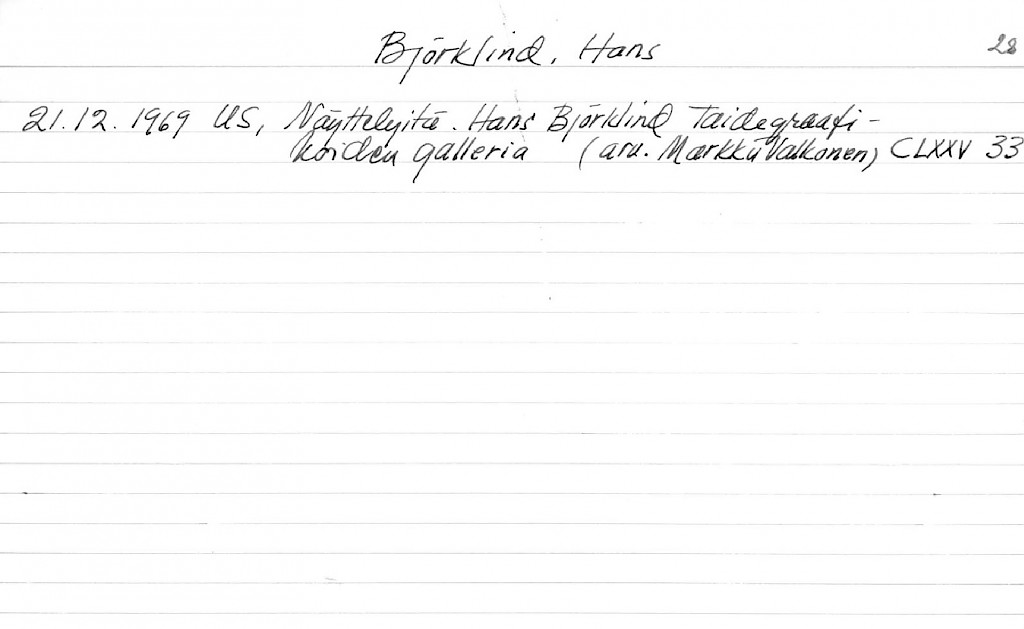 Björklind, Hans 28
21.12.1969 US, Näyttelyitä. Hans Björklind Taidegraafi-
koiden galleria (arv. Markku Valkonen) CLXXV 33